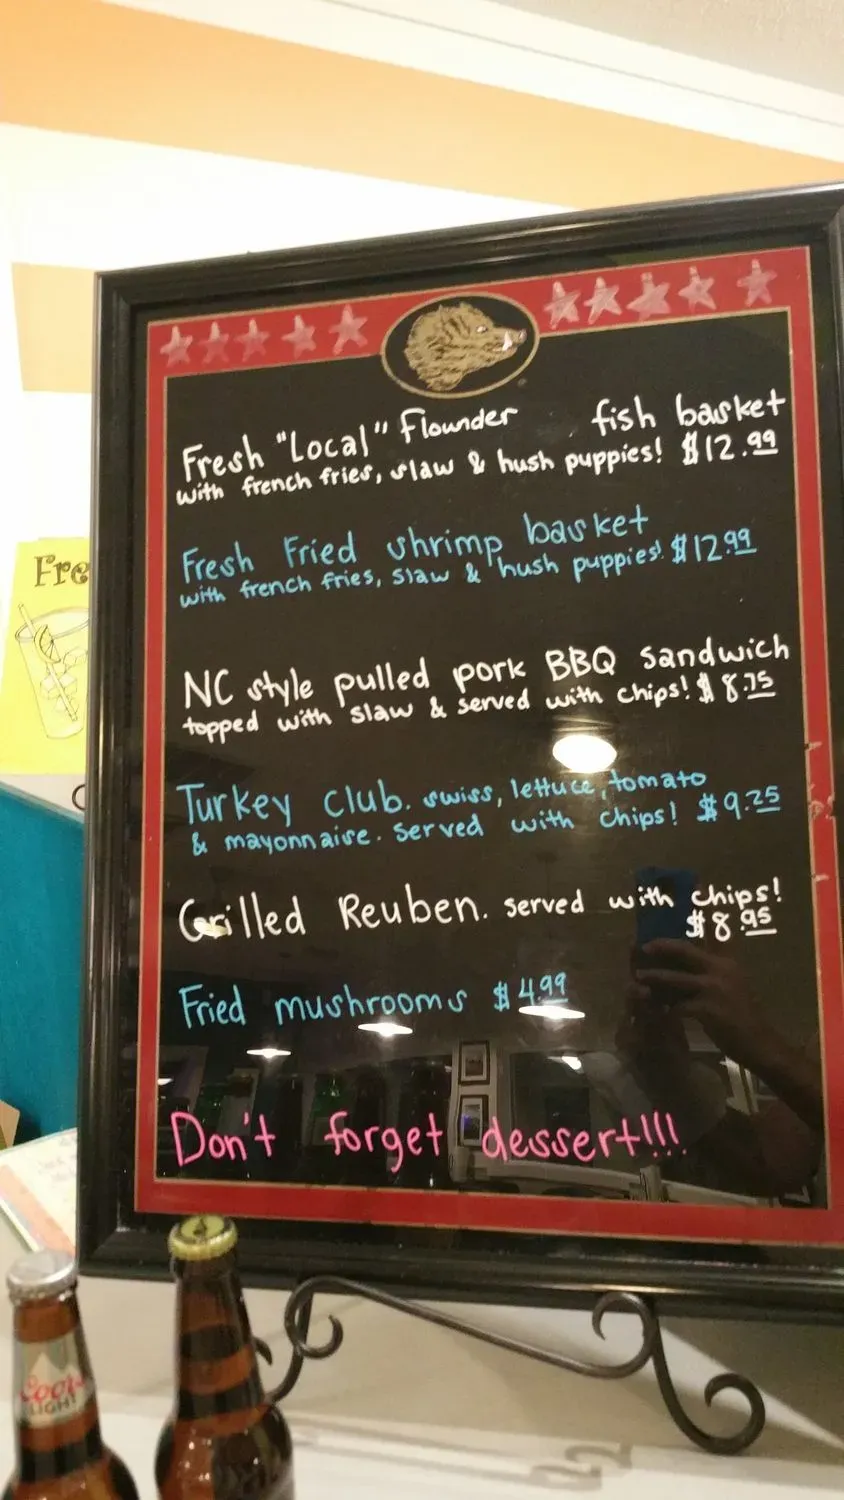 Fresh "Local" Flounder fish basket
with french fries, slaw & hush puppies! $12.99
Fresh Fried shrimp basket
with french fries, slaw & hush puppies! $12.99
NC style pulled pork BBQ sandwich
topped with slaw & served with chips! $8.75
Turkey club. swiss, lettuce, tomato
& mayonnaise. served with chips! $9.25
Grilled Reuben. served with chips!
$8.95
Fried mushrooms $4.99
Don't forget dessert!!!
Fre
Coors
LIGHT